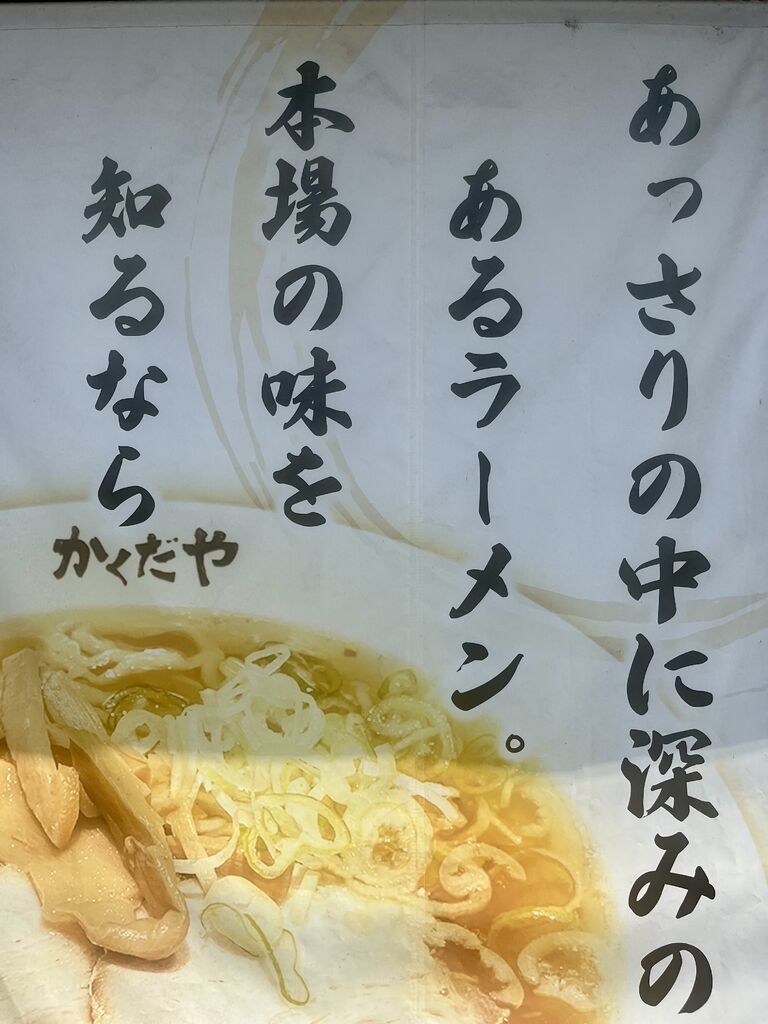 あっさりの中に深みの
あるラーメン。
本場の味を
知るなら
かくだや